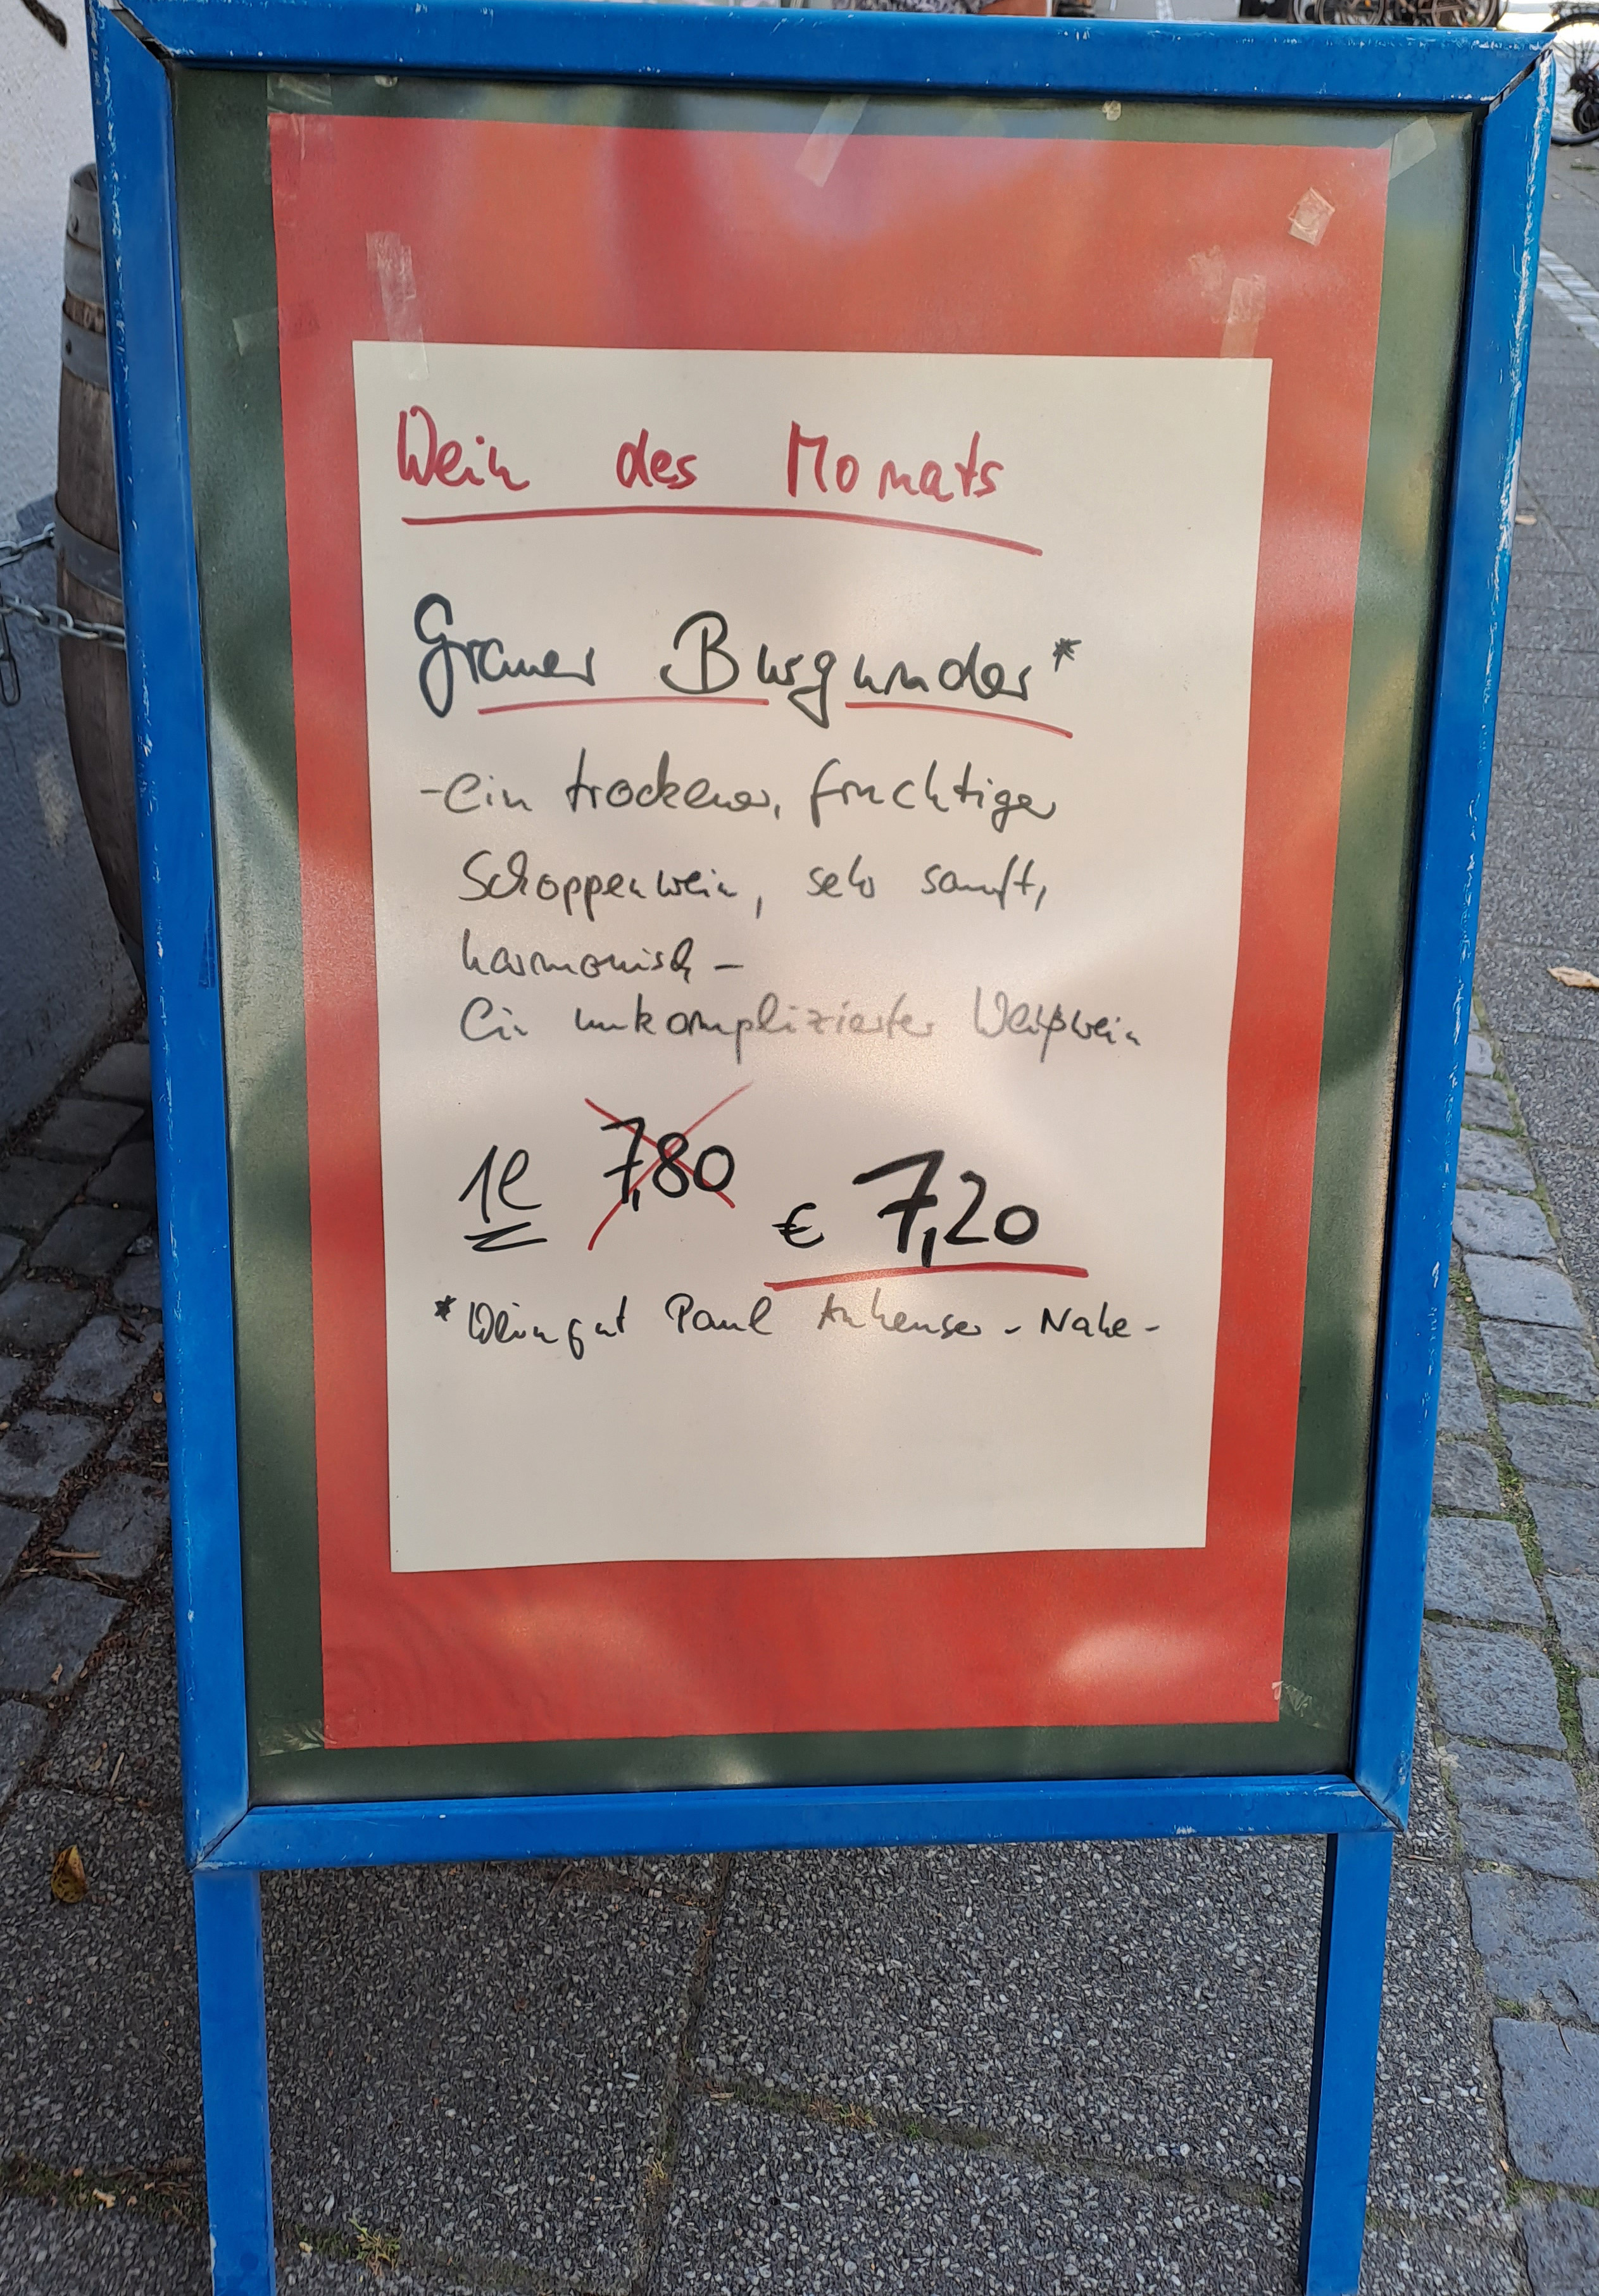 Wein des Monats
Grauer Burgunder*
-ein trockener, fruchtiger
Schoppenwein, sehr sanft,
harmonisch -
Ein unkomplizierter Weißwein
1l 7,80 € 7,20
*Weingut Paul Anheuser - Nahe -